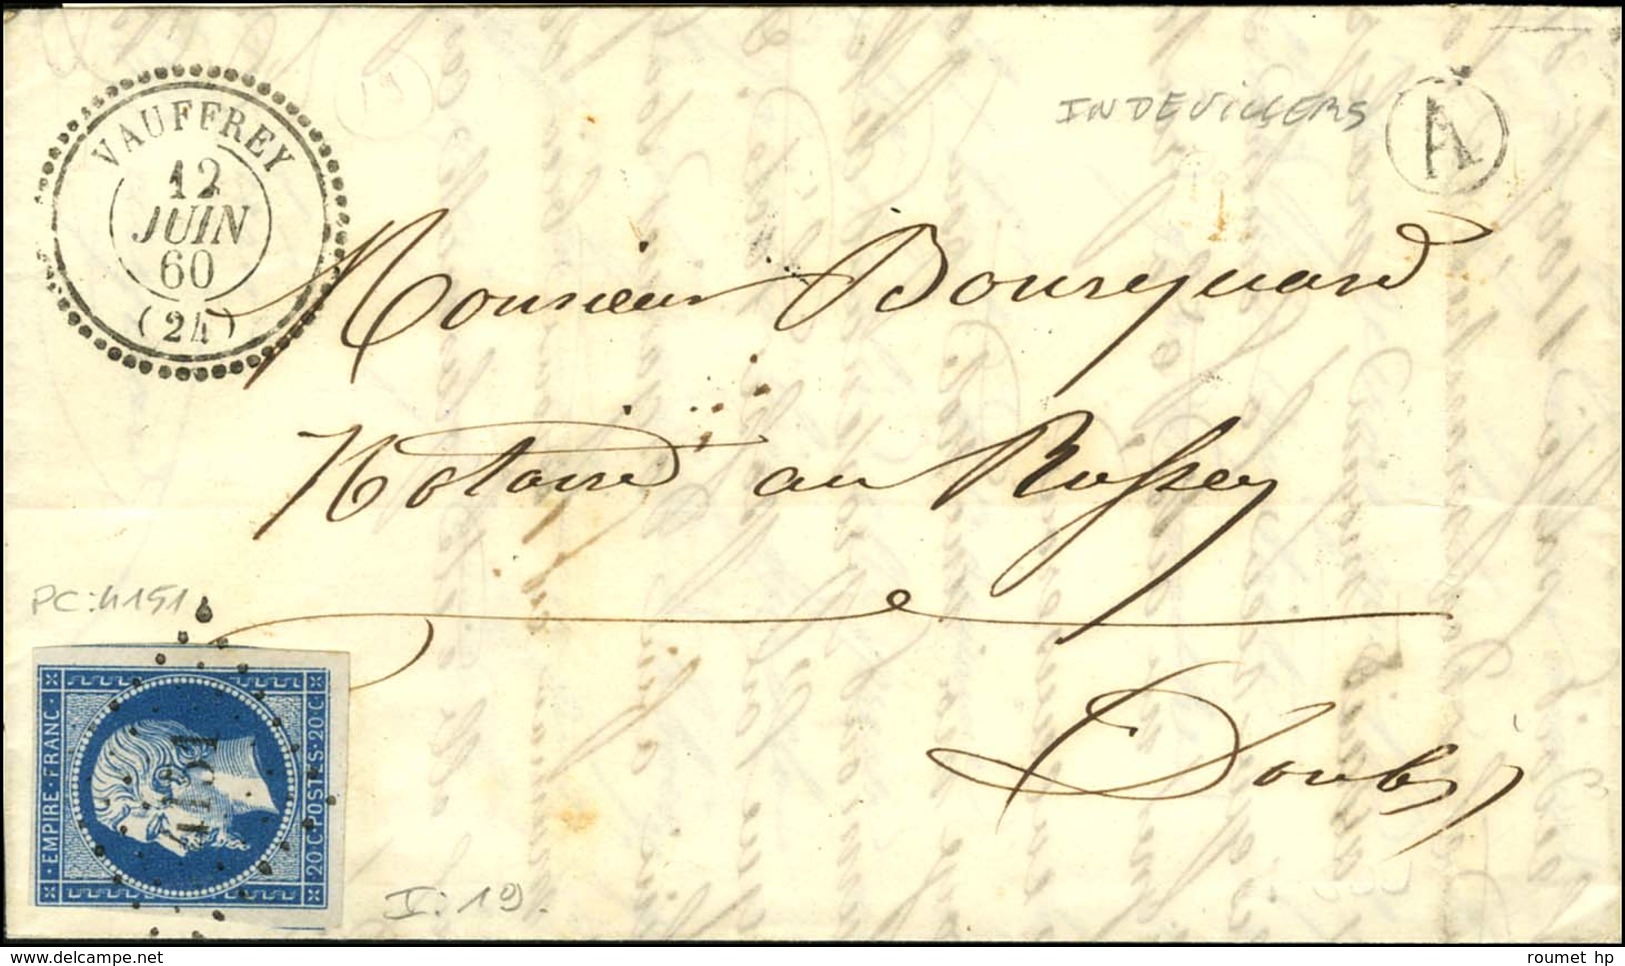 VAUFFREY
12
JUIN
60
(24)
INDEVILLERS
A
Monsieur Bourquard
Notaire au Russey
Doubs
PC: 4151
EMPIRE · FRANC ·
20 C · POSTES · 20 C
4151
I: 19.
roumet hp
www.delcampe.net